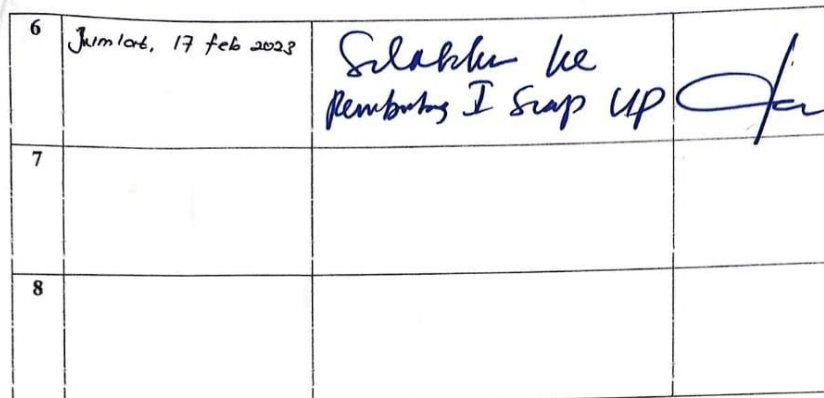 6
Jum'at, 17 feb 2023
Silahkan ke
Pembimbing I Siap UP
7
8